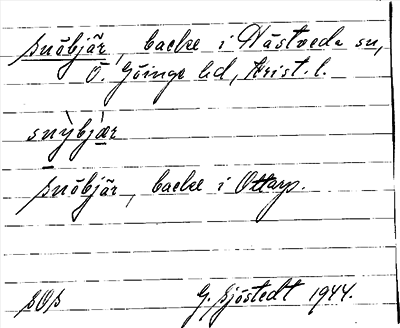 snöbjär, backe i Hästveda sn,
Ö. Göinge hd, Krist. l.
snỳbjær
snöbjär, backe i Ottarp.
SOS G. Sjöstedt 1944.